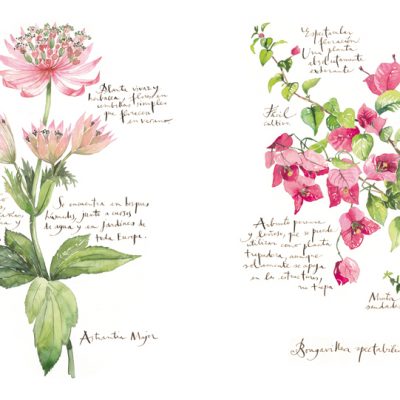 Planta vivaz y
herbácea, flores en
umbelas simples
que florecen
en verano
Se encuentra en bosques
húmedos, junto a cursos
de agua y en jardines de
toda Europa.
Astrantia Major
Espectacular
floración
Una planta
absolutamente
exuberante
Fácil
cultivo
Arbusto perenne
y leñoso, que se puede
utilizar como planta
trepadora, aunque
solamente se apoya
en las estructuras,
no trepa
Bougainvillea spectabilis